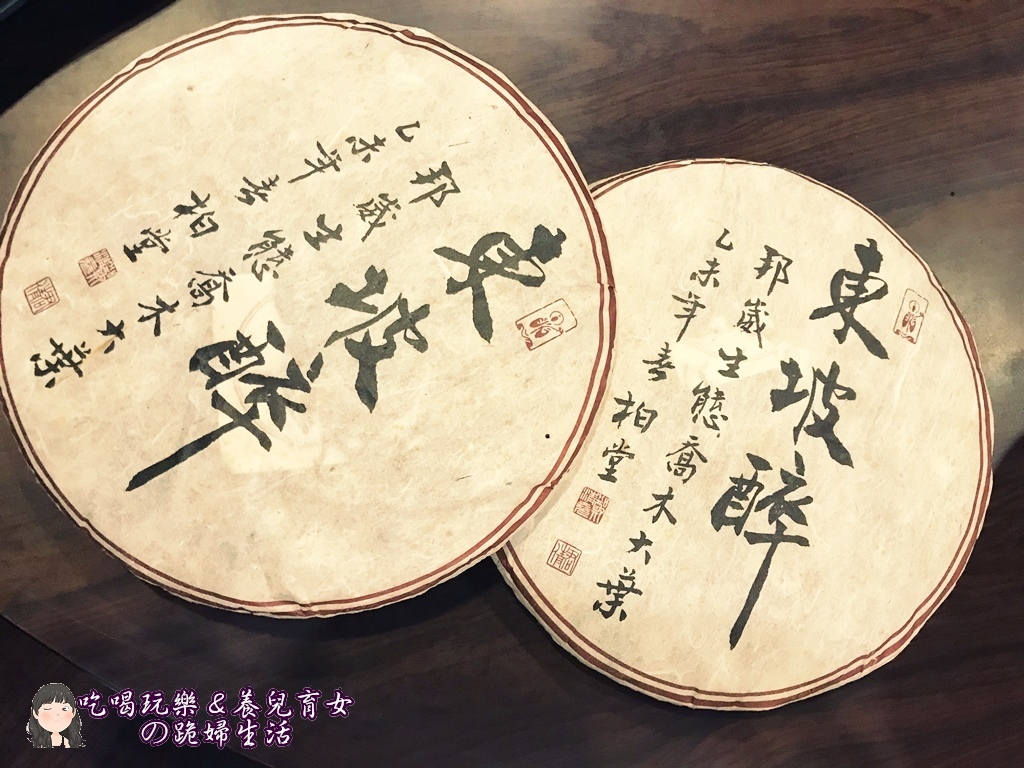 東坡醉
邦崴生態喬木大葉
乙未年春 柏堂
東坡醉
邦崴生態喬木大葉
乙未年春 柏堂
吃喝玩樂&養兒育女
の跪婦生活